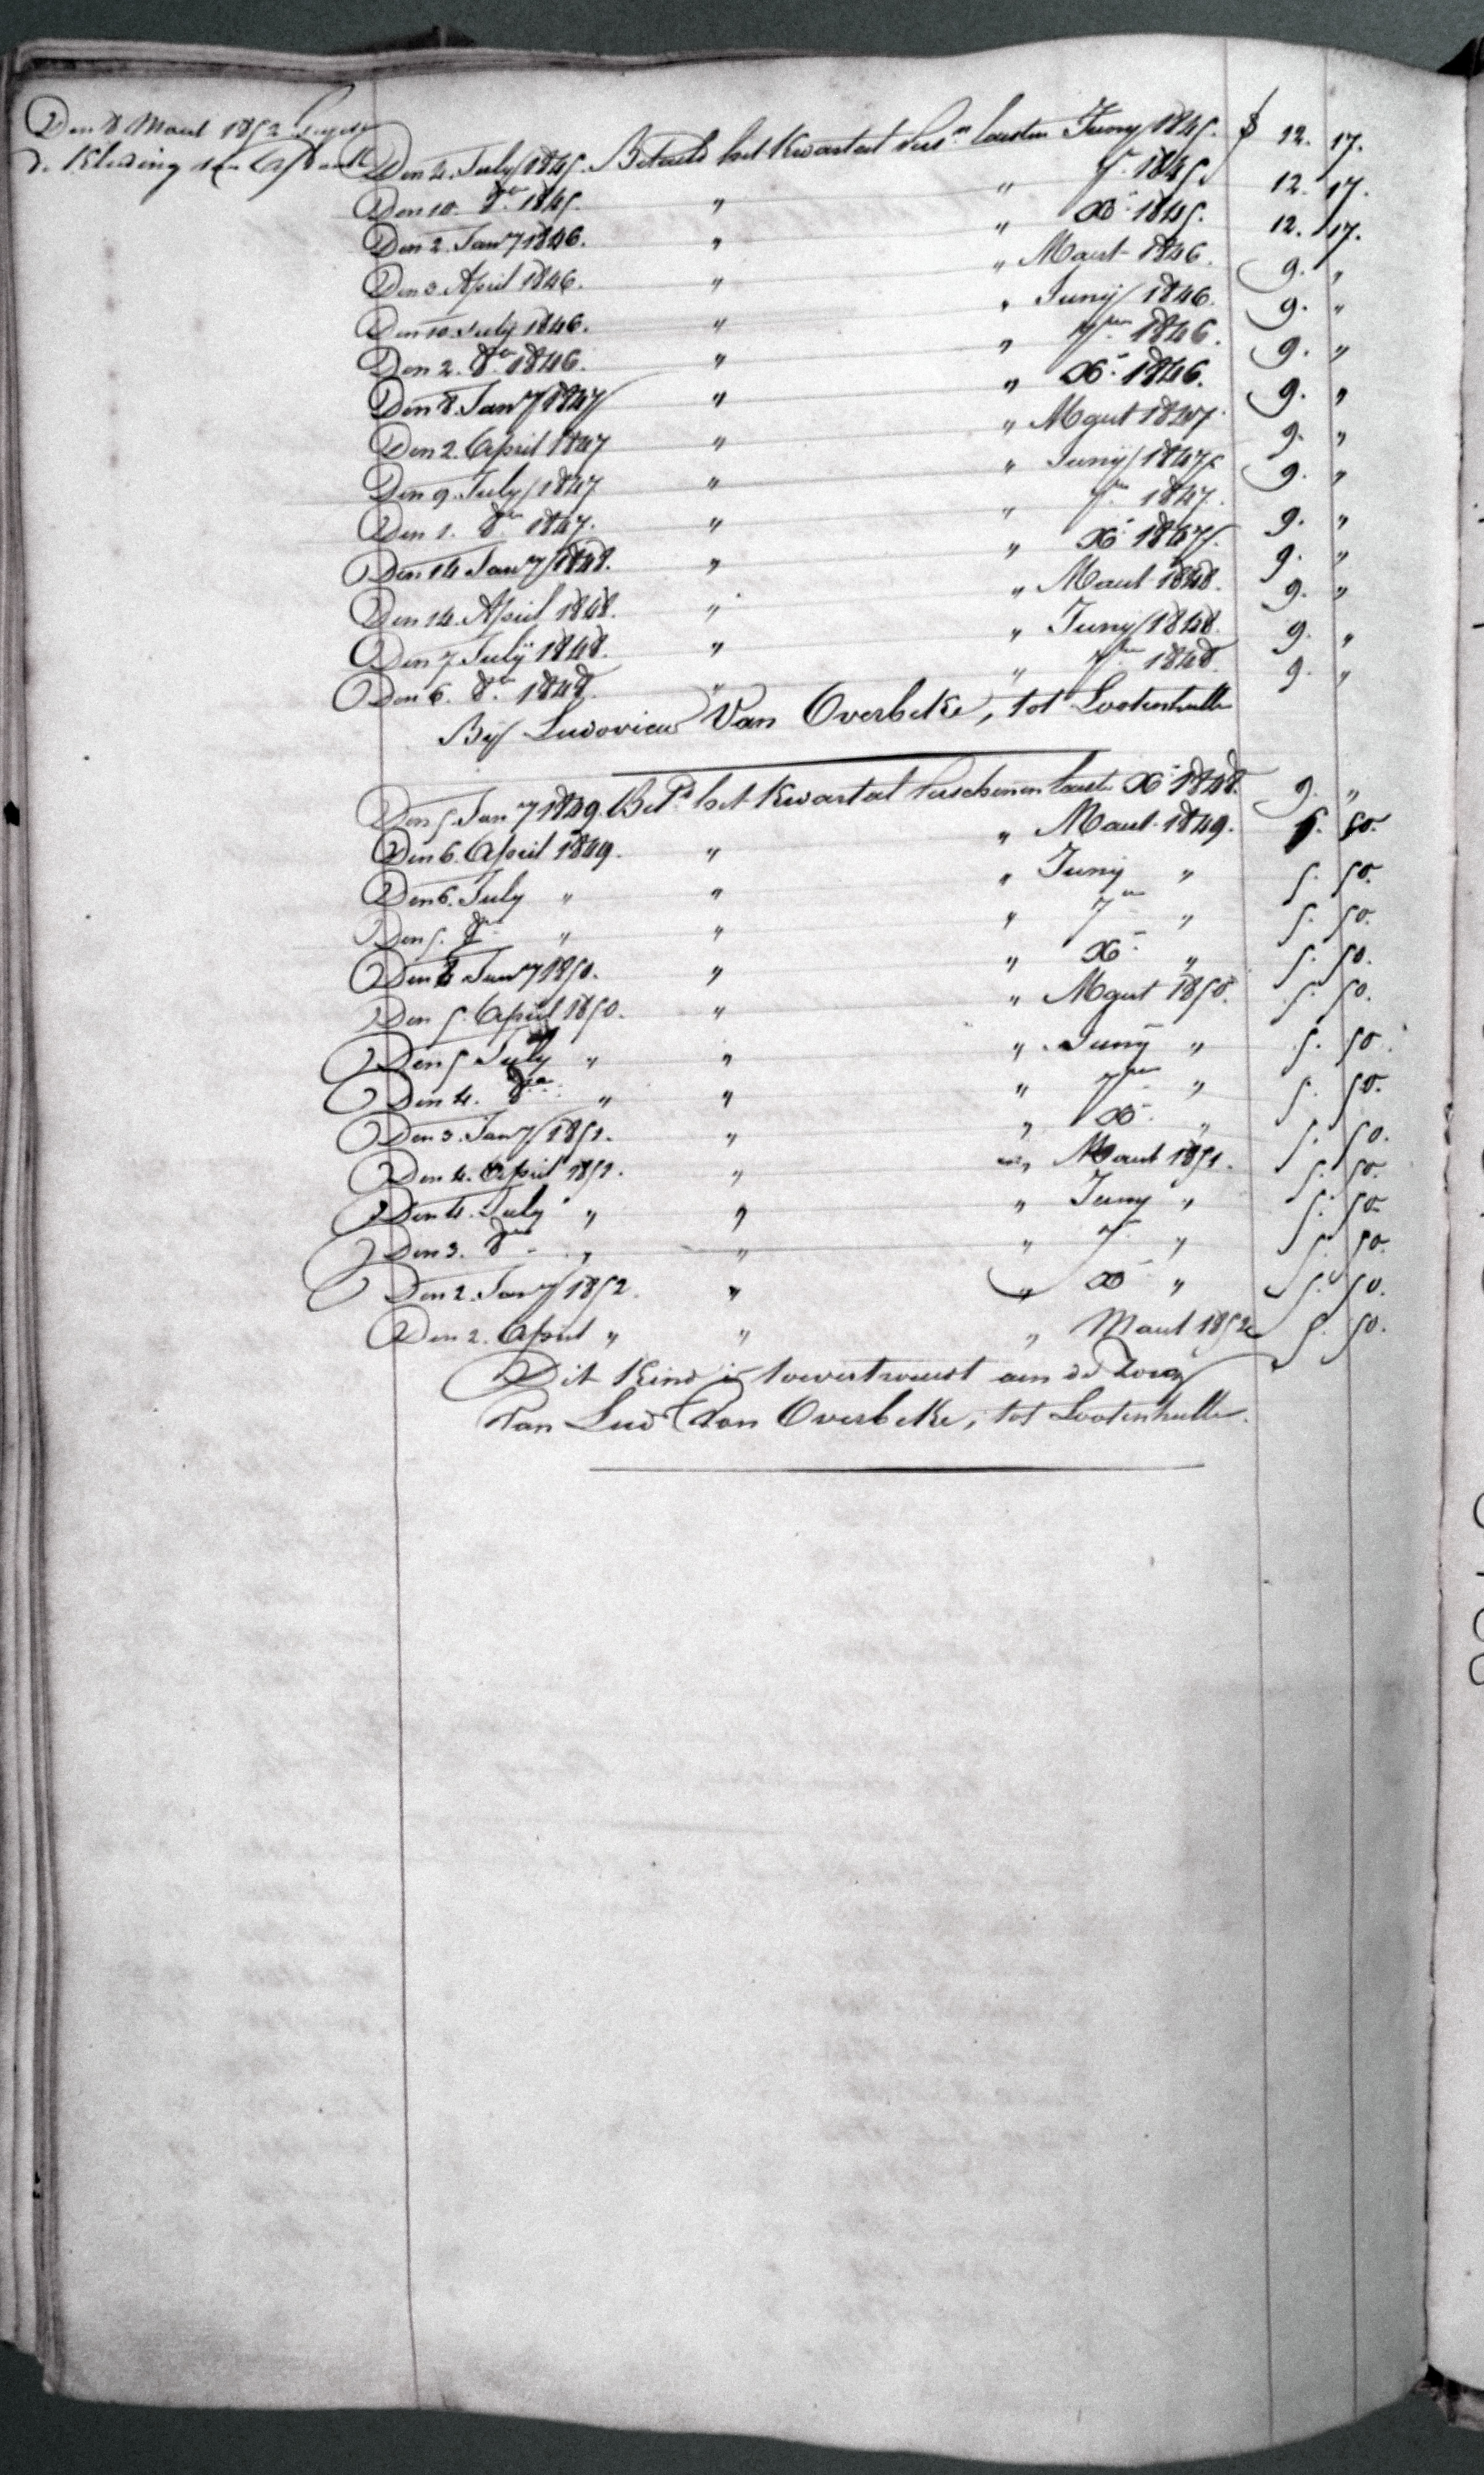 Den 8 Maert 1852
de Kleeding van
Den 4. July 1845. Betaeld het Kwartael vers.n laesten Juny 1845. f 12. 17.
Den 10. 8.er 1845. " " 7.r 1845. 12. 17.
Den 2. Jan.y 1846. " " X.r 1845. 12. 17.
Den 3. April 1846. " " Maert 1846. 9. "
Den 10. July 1846. " " Juny 1846. 9. "
Den 2. 8.er 1846. " " 7.ber 1846. 9. "
Den 8. Jan.y 1847 " " X.r 1846. 9. "
Den 2. April 1847 " " Maert 1847. 9. "
Den 9. July 1847 " " Juny 1847. 9. "
Den 1. 8.er 1847. " " 7.ber 1847. 9. "
Den 14 Jan.y 1848. " " X.r 1847. 9. "
Den 14. April 1848. " " Maert 1848. 9. "
Den 7 July 1848. " " Juny 1848. 9. "
Den 6. 8.er 1848. " " 7.ber 1848. 9. "
By Ludovicus Van Overbeke, tot Lootenhulle
Den 5. Jan.y 1849. Bet.d het Kwartael verschenen laest. X.r 1848. 9. "
Den 6. April 1849. " " Maert 1849. 5. 50.
Den 6. July " " " Juny " 5. 50.
Den 5. 8.er " " " 7.er " 5. 50.
Den 4 Jan.y 1850. " " X.r " 5. 50.
Den 5. April 1850. " " Maert 1850. 5. 50.
Den 5 July " " " Juny " 5. 50.
Den 4. 8.er " " " 7.ber " 5. 50.
Den 3. Jan.y 1851. " " X.r " 5. 50.
Den 4. April 1851. " " Maert 1851. 5. 50.
Den 4. July " " " Juny " 5. 50.
Den 3. 8.er " " " 7.r " 5. 50.
Den 2. Jan.y 1852. " " X.r " 5. 50.
Den 2. April " " " Maert 1852 5. 50.
Dit Kind is toevertrouwt aen de Zorg
Van Lud. Van Overbeke, tot Lootenhulle.